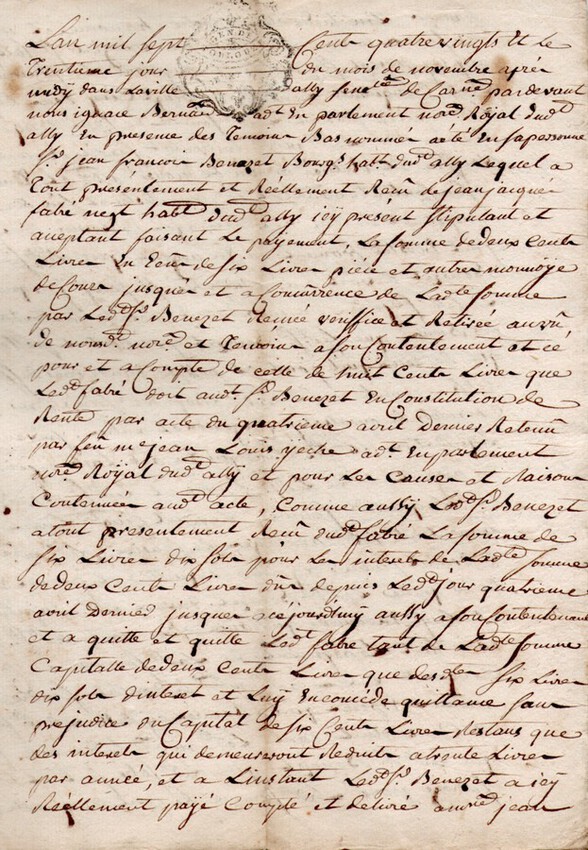 L'an mil sept Cents quatre vingts et le
Trentieme jour du mois de novembre aprés
midy dans laville dally senec.ée de Carne par devant
nous ignace Bernard adt. en parlement nore. Royal dudt.
ally En presence des Temoins Bas nommés a eté En sa personne
Sr. jean francois Benezet Bourgs. habt. dudt. ally Lequel a
Tout presentement et Réellement Receu de jean jacques
fabre negt. habt. dudt. ally icy présent stipulant et
aceptant faisant le payement, La somme de deux Cents
Livres En Ecus de six Livres piéce et autre monnoye
de Cours jusques et a Concurrence de Ladte. somme
par Ledt. Sr. Benezet verifficé et Retirée au vu
de nousdt. nore. et Temoins a son Contentement et ce
pour et a Compte de celle de huit Cents Livres que
Ledt. fabré doit audt. Sr. Benezet En Constitution de
Rente par acte du quatrieme avril dernier Retenu
par feu me jean Louis yeche adt. En parlement
nore. Royal dudt. ally et pour les Causes et Raisons
Contenues audt. acte, Comme aussy Ledt. Sr. Benezet
a tout presentement Receu dudt. fabré La somme de
six Livres dix sols pour les interets de Ladte. somme
de deux Cents Livres dus depuis Ledt. jour quatrieme
avril dernier jusques acejourdhuy aussy a son Contentement
et a quitte et quitte Ledt. fabre tant de Ladte. somme
Capitalle de deux Cents Livres que desdtes. six Livres
dix sols d'interet et Luy En concéde quittance sans
prejudice du Capital de six Cents Livres Restans que
des interets qui demeureront Reduits a trente Livres
par année, et a L'instant Ledt. Sr. Benezet a icy
Réellement payé Compté et delivré a me jean